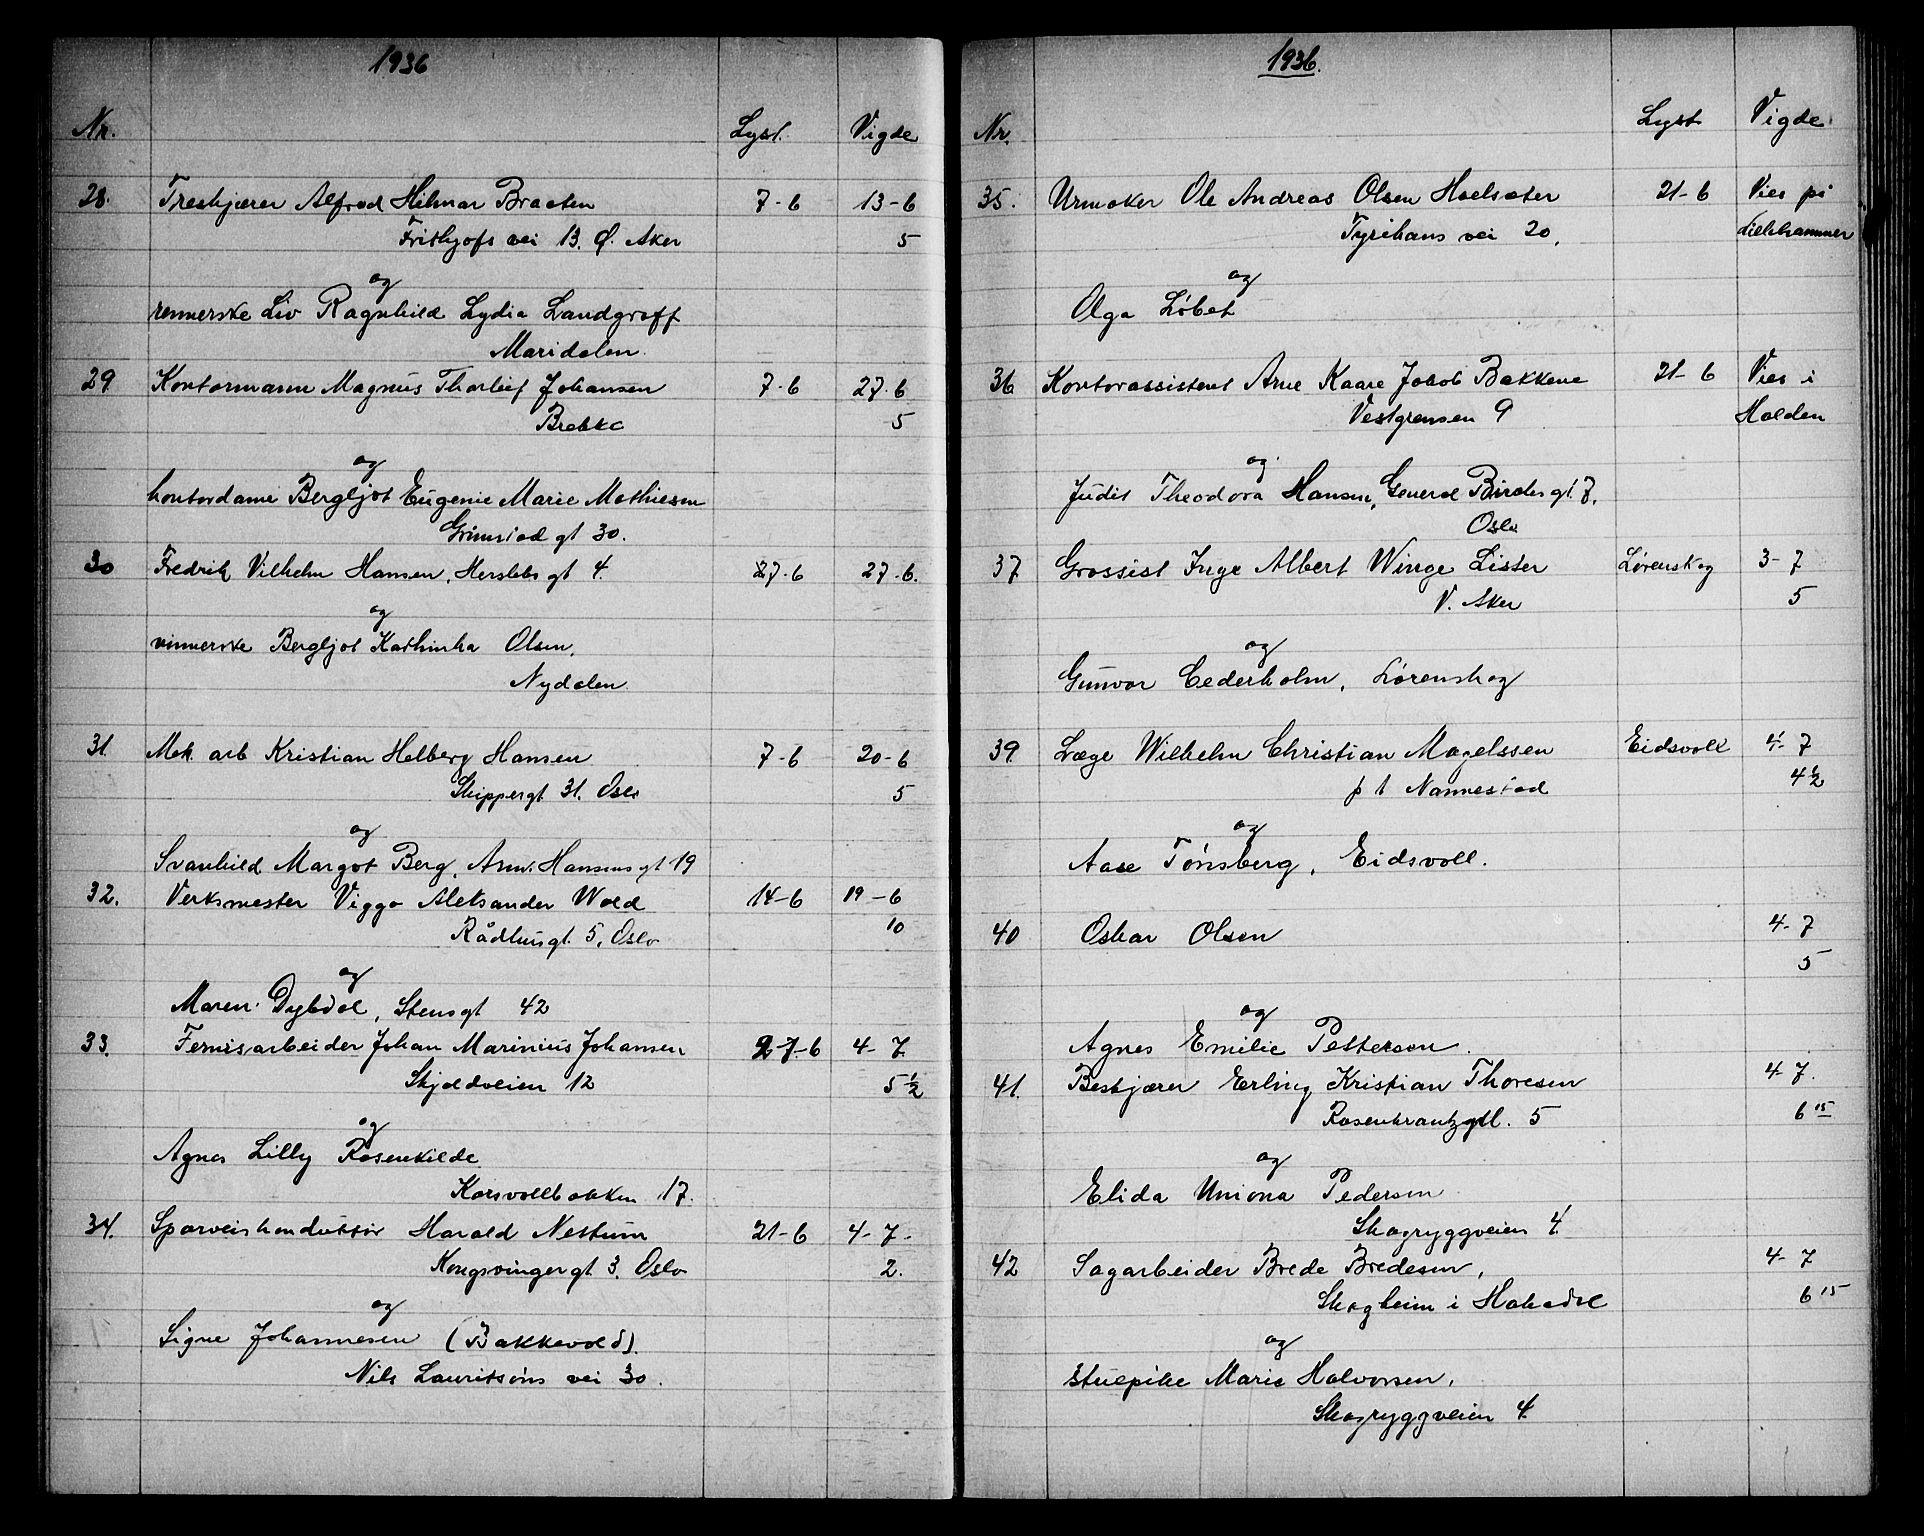 1936
Nr. Lyst. Vigde
28. Treskjærer Alfred Hilmar Braaten 7-6 13-6
Frithjofs vei 13. Ø. Aker 5
og
rennerske Liv Ragnhild Lydia Landgraff
Maridalen.
29 Kontormann Magnus Thorleif Johansen 7-6 27-6
Brekke 5
og
kontordame Bergljot Eugenie Marie Mathiesen
Grimstad gt 30.
30 Fredrik Vilhelm Hansen, Herslebs gt 4. 27-6 27-6.
og
vinnerske Bergljot Kathinka Olsen,
Nydalen.
31. Mek. arb Kristian Helberg Hansen 7-6 20-6
Skippergt 31. Oslo 5
og
Svanhild Margot Berg, Arn. Hansens gt 19
32. Verksmester Viggo Aleksander Wold 14-6 19-6
Rådhusgt. 5, Oslo 10
og
Maren Dybdal, Stensgt 42
33. Fernisarbeider Johan Marinius Johansen 27-6 4-7
Skjoldveien 12 5 1/2
og
Agnes Lilly Rosenkilde
Korsvollbakken 17.
34. Sporveiskonduktør Harald Nestum 21-6 4-7-
Kongsvingergt 3. Oslo 2.
og
Signe Johannesen (Bakkevold).
Nils Lauritsøns vei 30.
1936.
Nr. Lyst Vigde
35. Urmaker Ole Andreas Olsen Hoelsæter 21-6 Vies på
Tyrihans vei 20. Lillehammer
og
Olga Løbet
36 Kontorassistent Arne Kaare Jakob Bakkene 21-6 Vies i
Vestgrensen 9 Halden
og
Judit Theodora Hansen, General Birchs gt. 7.
Oslo
37 Grossist Inge Albert Winge Lister Lørenskog 3-7
V. Aker 5
og
Gunvor Cederholm, Lørenskog
39. Læge Wilhelm Christian Magelssen Eidsvoll 4-7
p t Nannestad 4 1/2
og
Aase Tønsberg, Eidsvoll.
40 Oskar Olsen 4-7
5
og
Agnes Emilie Pettersen.
41. Beskjærer Erling Kristian Thoresen 4-7.
Rosenkrantzgtl. 5 6 15
og
Elida Uniona Pedersen
Skogryggveien 4.
42 Sagarbeider Brede Bredesen, 4-7
Skogheim i Hakadal 6 15
og
stuepike Marie Halvorsen,
Skogryggveien 4.